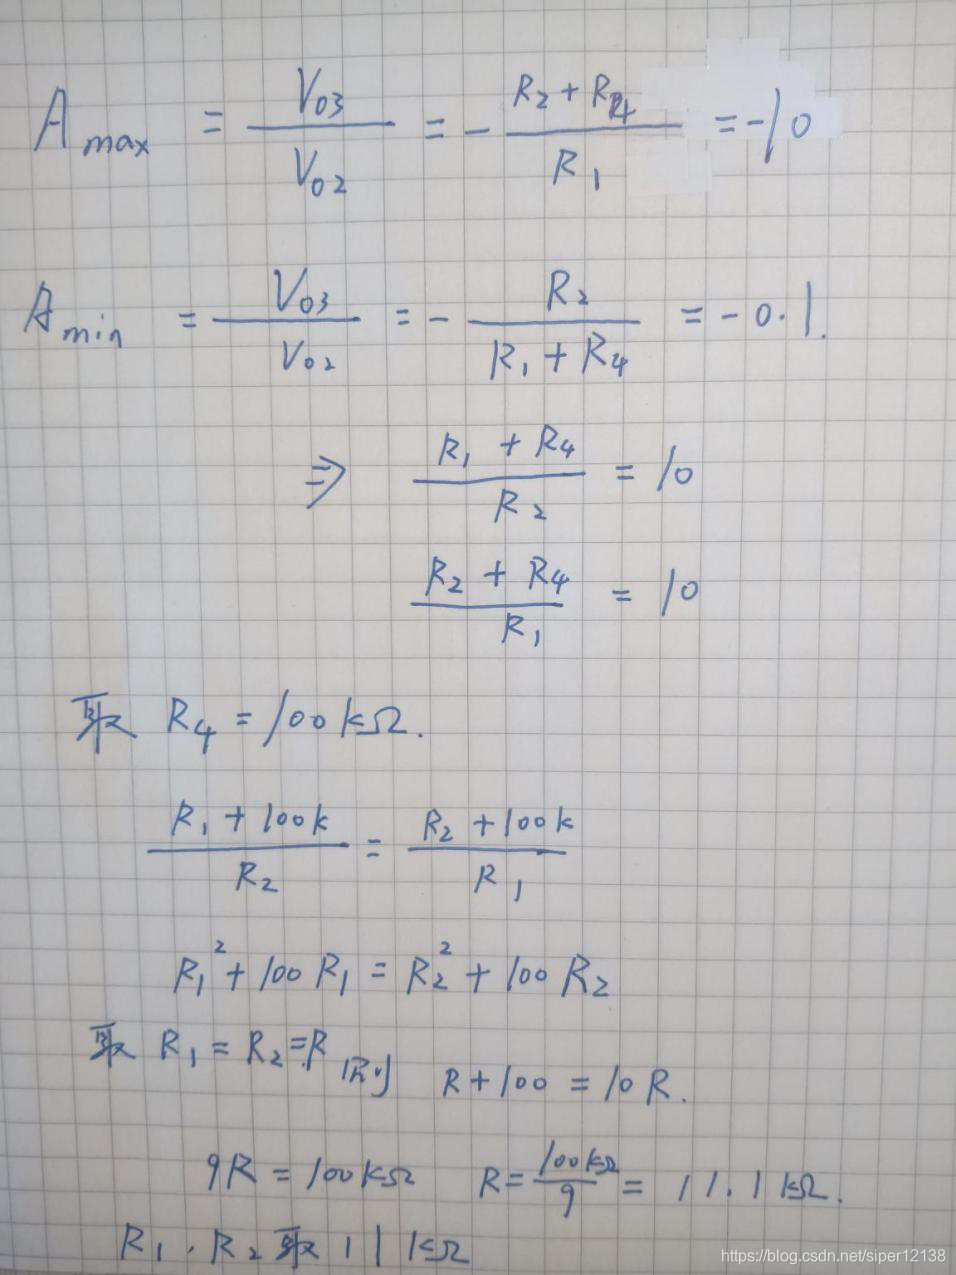 A max = V03 / V02 = - (R2 + R4) / R1 = -10
A min = V03 / V02 = - R2 / (R1 + R4) = -0.1.
⇒ (R1 + R4) / R2 = 10
(R2 + R4) / R1 = 10
取 R4 = 100kΩ.
(R1 + 100k) / R2 = (R2 + 100k) / R1
R1² + 100 R1 = R2² + 100 R2
取 R1 = R2 = R 则 R + 100 = 10 R.
9R = 100kΩ R = 100kΩ / 9 = 11.1 kΩ.
R1, R2 取 11 kΩ
https://blog.csdn.net/siper12138